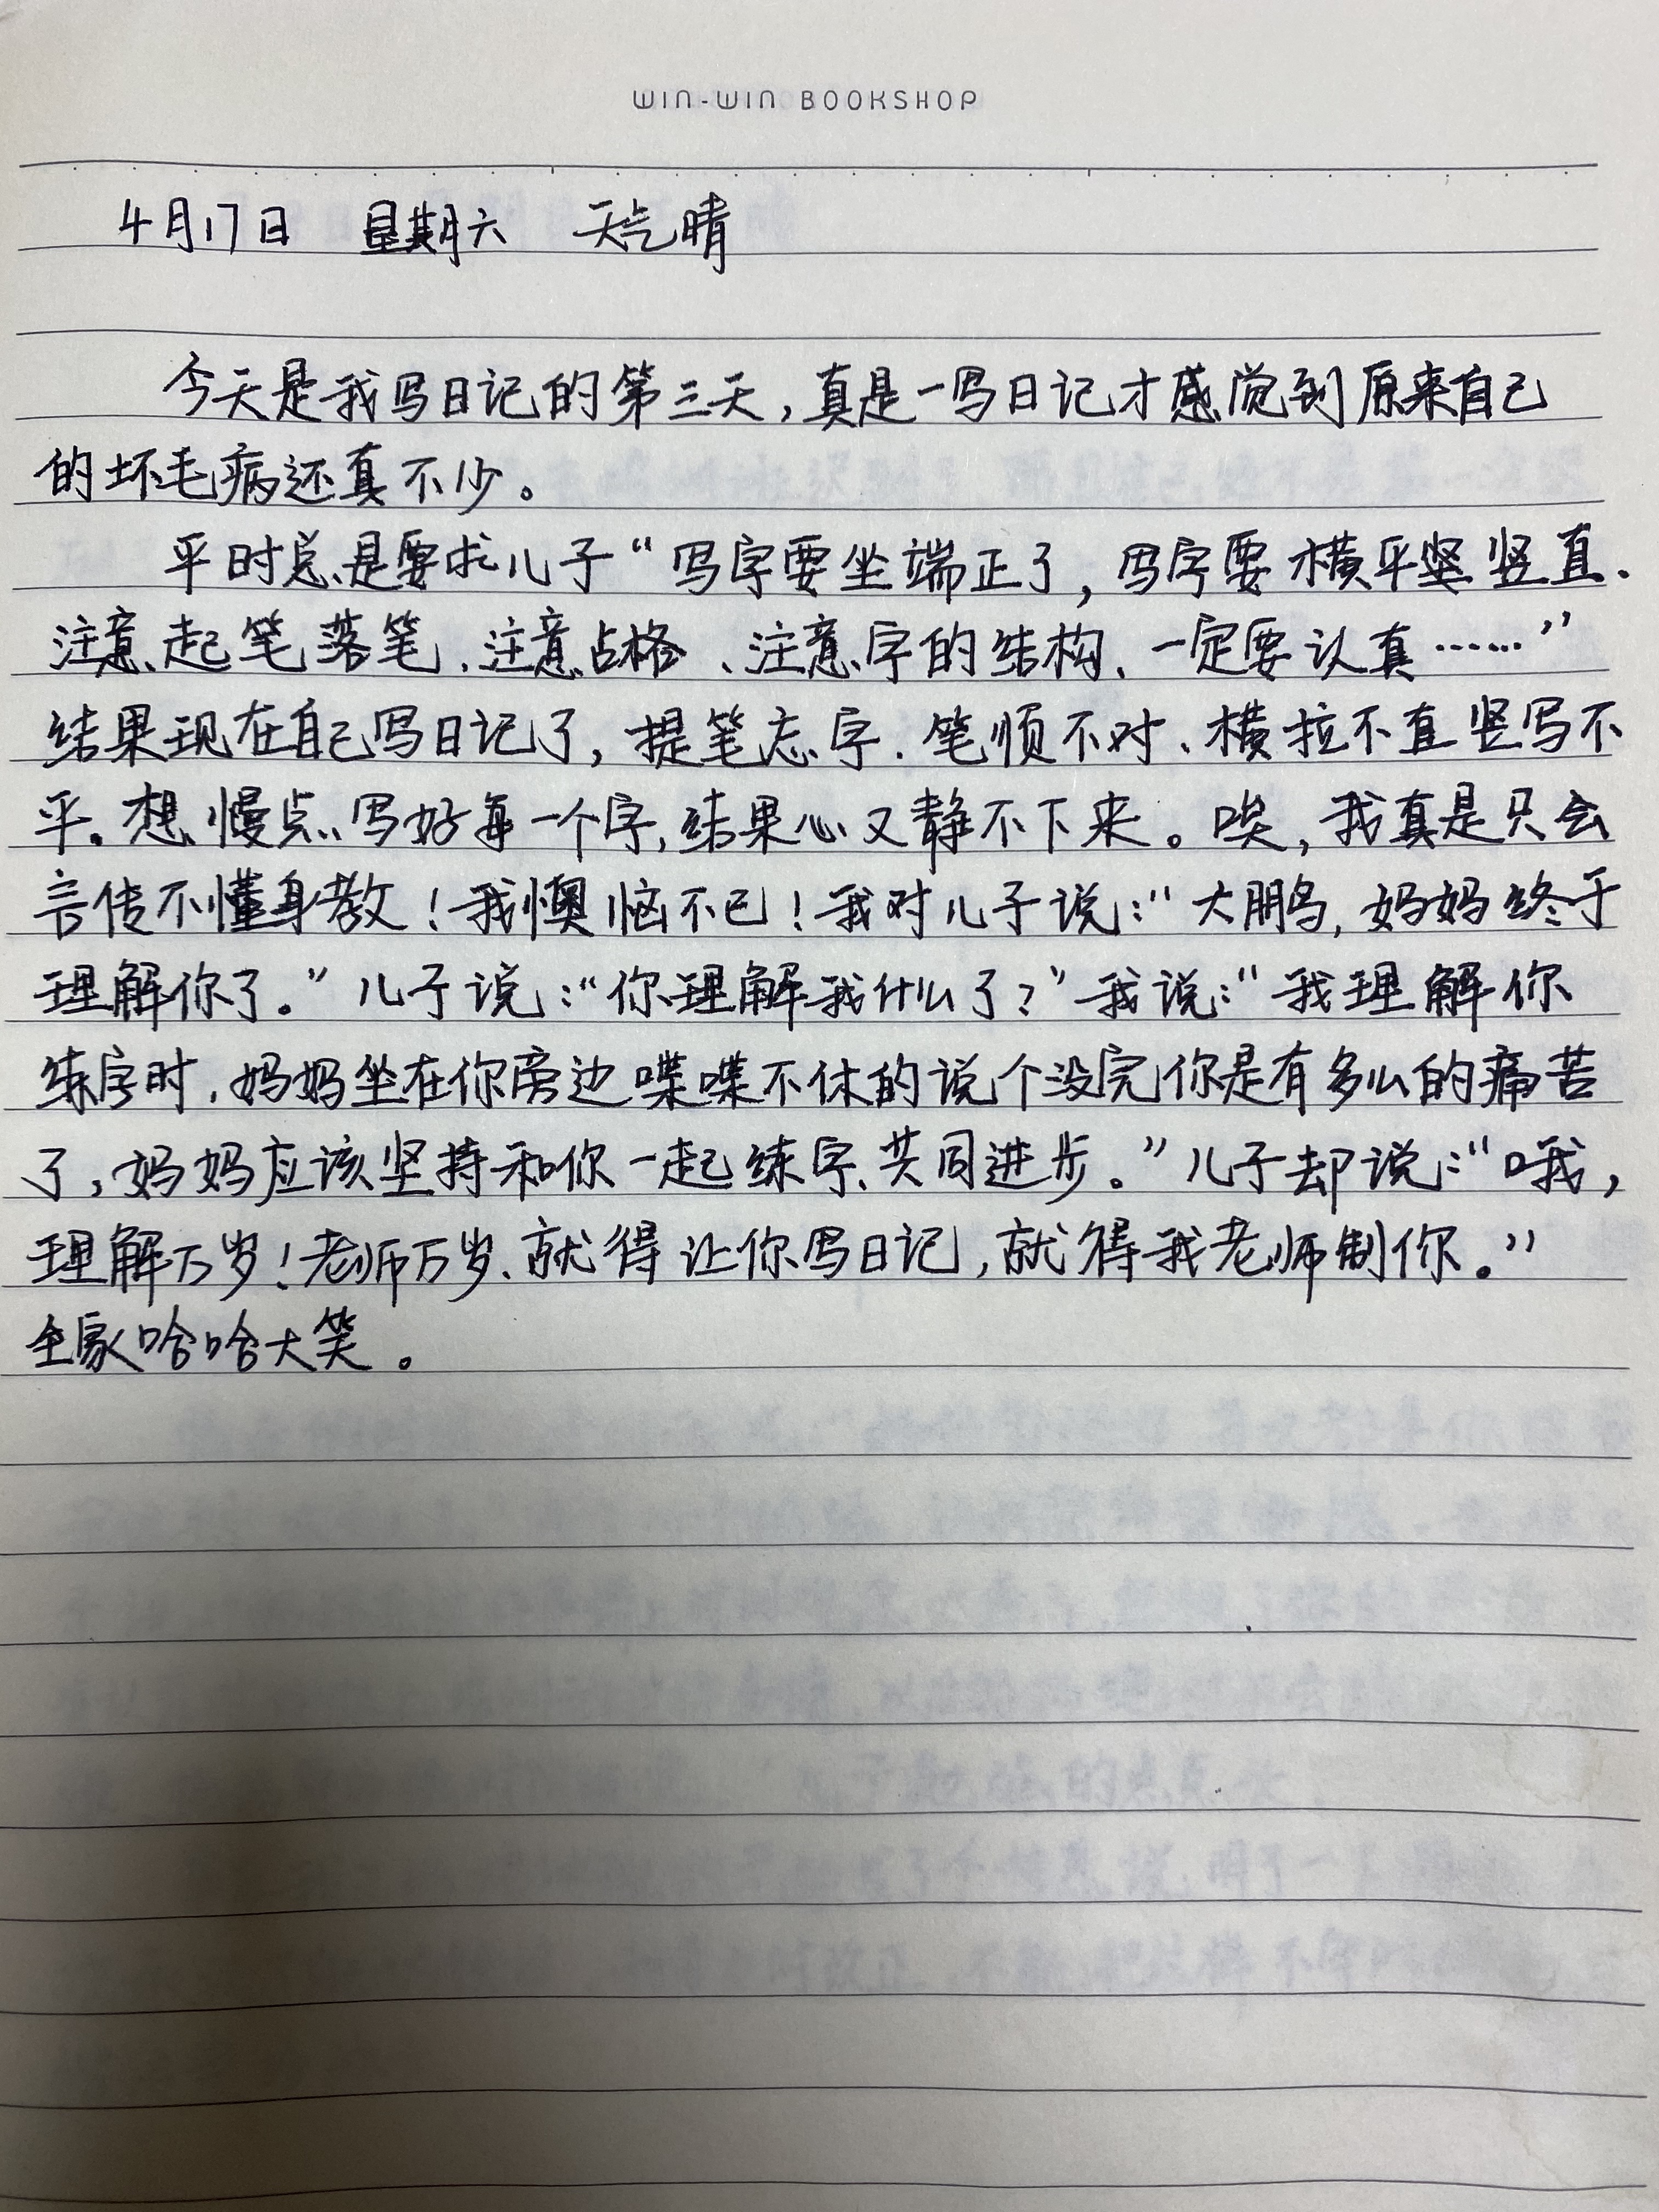 WIN-WIN BOOKSHOP
4月17日 星期六 天气晴
今天是我写日记的第三天,真是一写日记才感觉到原来自己
的坏毛病还真不少。
平时总是要求儿子“写字要坐端正了,写字要横平竖竖直.
注意起笔落笔、注意占格、注意字的结构、一定要认真……”
结果现在自己写日记了,提笔忘字.笔顺不对、横拉不直竖写不
平。想慢点写好每一个字,结果心又静不下来。唉,我真是只会
言传不懂身教!我懊恼不已!我对儿子说:“大鹏鸟,妈妈终于
理解你了。”儿子说:“你理解我什么了?”我说:“我理解你
练字时,妈妈坐在你旁边喋喋不休的说个没完你是有多么的痛苦
了,妈妈应该坚持和你一起练字、共同进步。”儿子却说:“哦,
理解万岁!老师万岁、就得让你写日记,就得我老师制你。”
全家哈哈大笑。